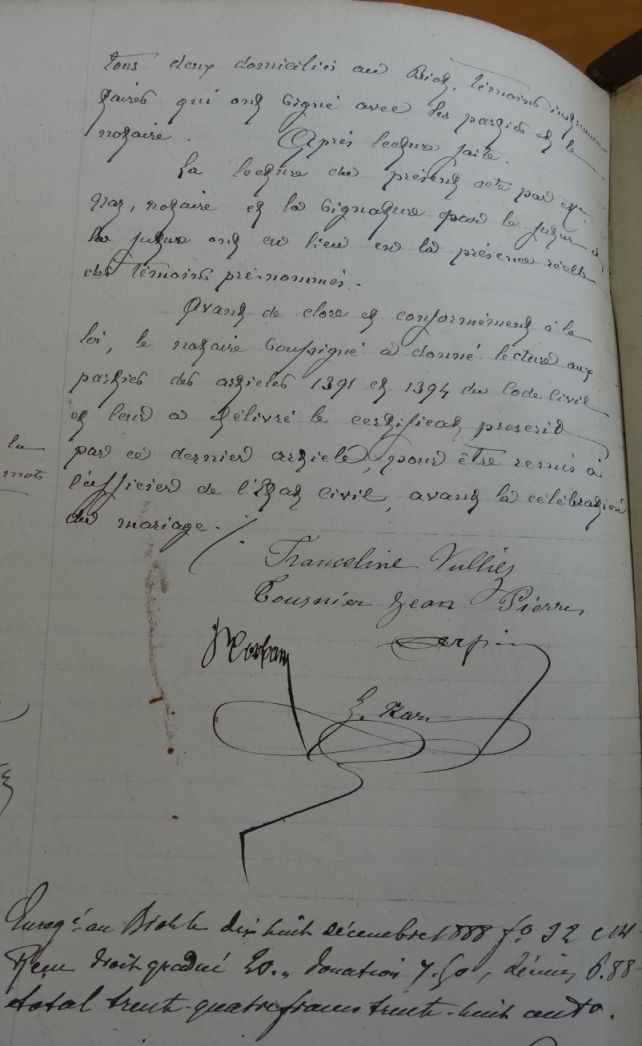 tous deux domiciliés au Biot, témoins instrumen-
taires qui ont signé avec les parties et le
notaire. Après lecture faite.
La lecture du présent acte par
Naz, notaire et la signature par le futur &
la future ont eu lieu en la présence réelle
des témoins prénommés.
Avant de clore et conformément à la
loi, le notaire soussigné a donné lecture aux
parties des articles 1391 et 1394 du Code Civil
et leur a délivré le certificat prescrit
par ce dernier article, pour être remis à
l'officier de l'Etat civil, avant la célébration
du mariage.
la
mots
Franceline Vulliez
Tournier Jean Pierre
Naz
Enregé au Biot le dix huit décembre 1888 fo 32 c 14
Reçu droit gradué 20.,, donation 7.50, décimes 6.88
total trente-quatre francs trente-huit cento.